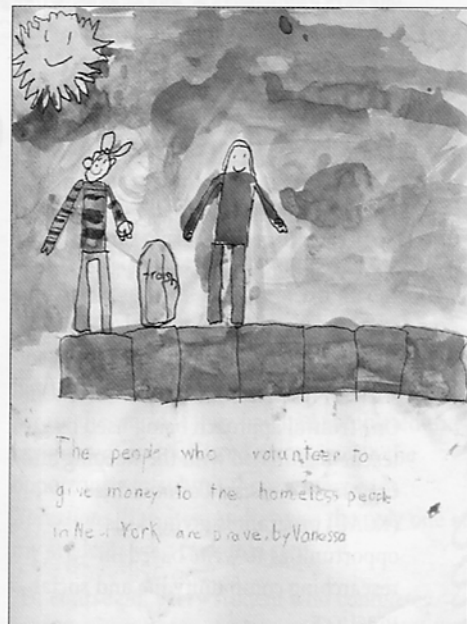 trash
The people who volunteer to
give money to the homeless people
in New York are brave. by Vanessa